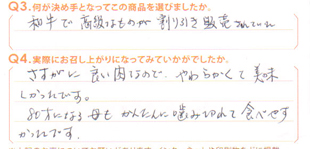 Q3.何が決め手となってこの商品を選びましたか。
和牛で高級なものが割り引き販売されていた
Q4.実際にお召し上がりになってみていかがでしたか。
さすがに良い肉なので、やわらかくて美味
しかったです。
80才になる母もかんたんに噛み切れて食べやす
かったです。